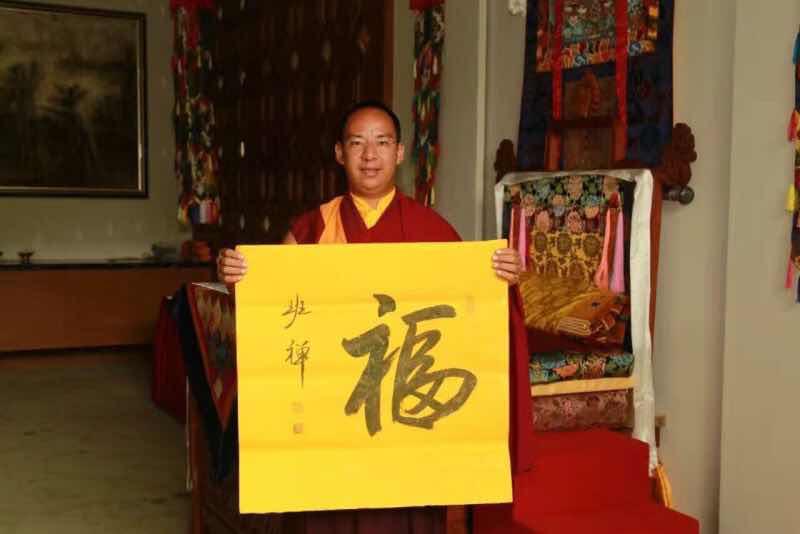 福
班禅